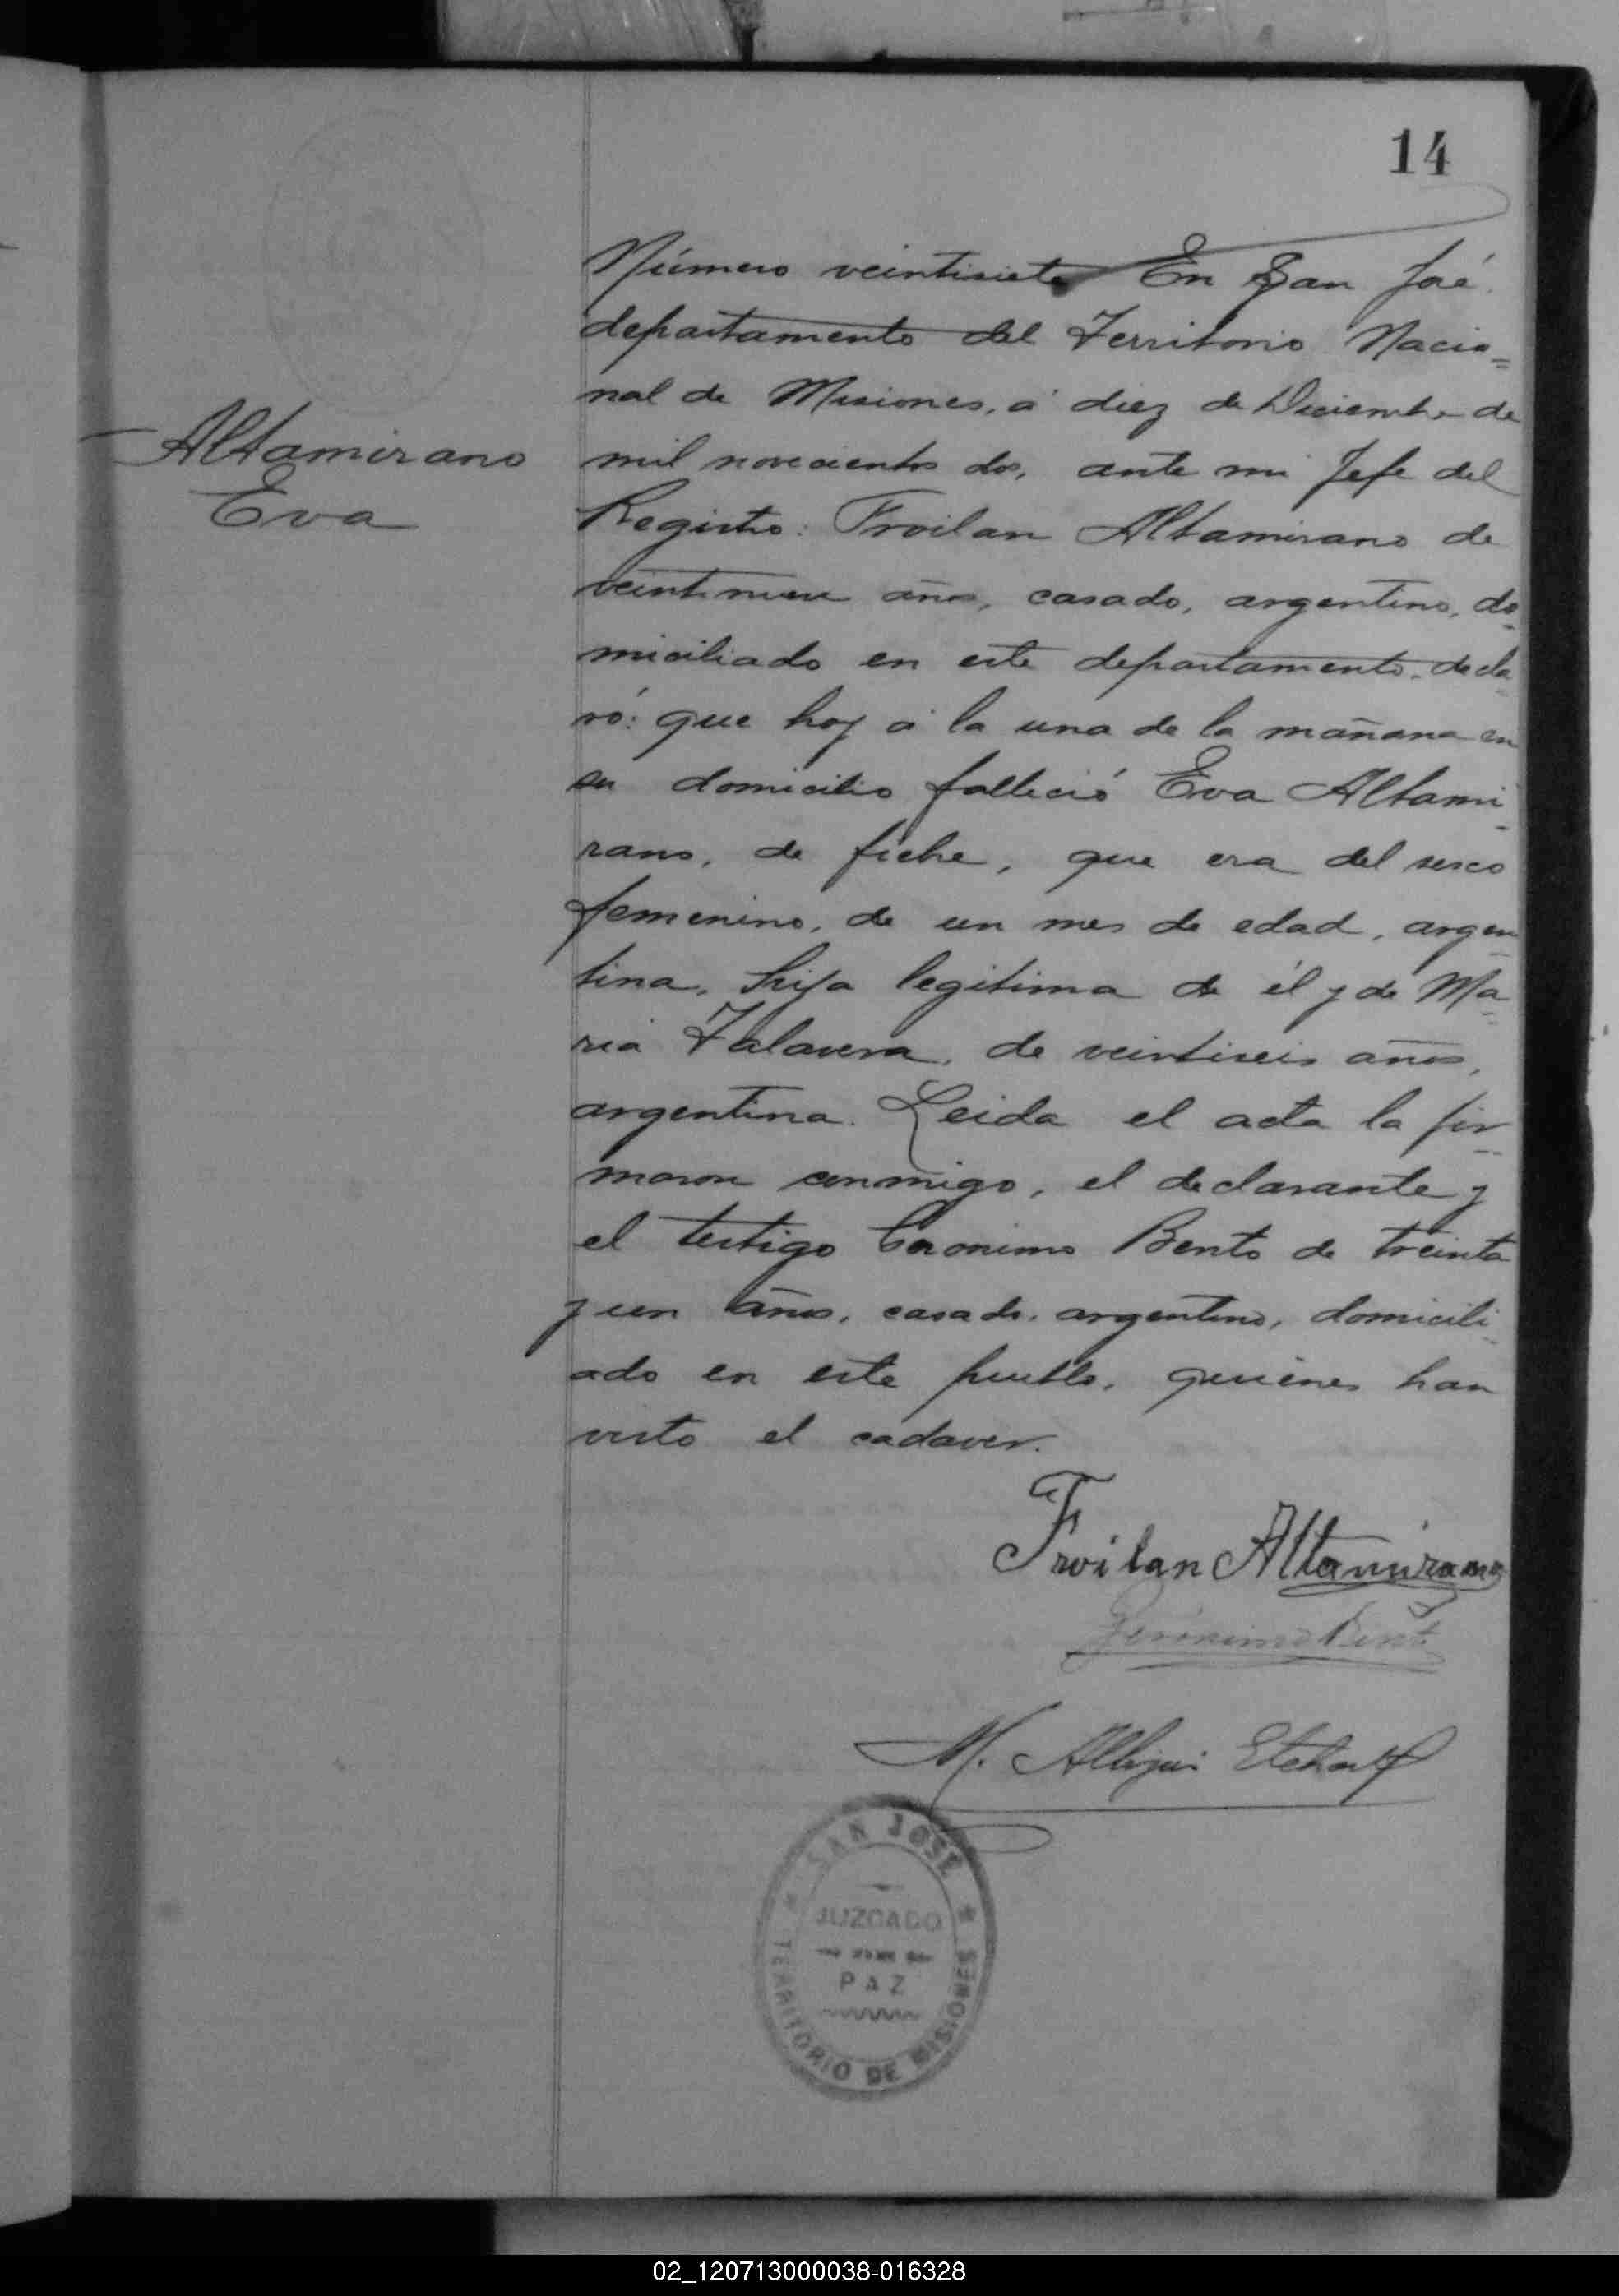 14
Número veintisiete En San José
departamento del Territorio Nacio=
nal de Misiones, á diez de Diciembre de
Altamirano
Eva
mil novecientos dos, ante mi Jefe del
Registro: Froilan Altamirano de
veintinueve años, casado, argentino, do=
miciliado en este departamento, decla=
ró: que hoy á la una de la mañana en
su domicilio falleció Eva Altami=
rano, de fiebre, que era del sexo
femenino, de un mes de edad, argen=
tina, hija legitima de él y de Ma=
ria Talavera, de veintiseis años,
argentina. Leida el acta la fir=
maron conmigo, el declarante y
el testigo Geronimo Bento de treinta
y un años, casado, argentino, domicili=
ado en este pueblo, quienes han
visto el cadaver.
Froilan Altamirano
Jeronimo Bento
M.
SAN JOSÉ
JUZGADO
PAZ
TERRITORIO DE MISIONES
02_120713000038-016328